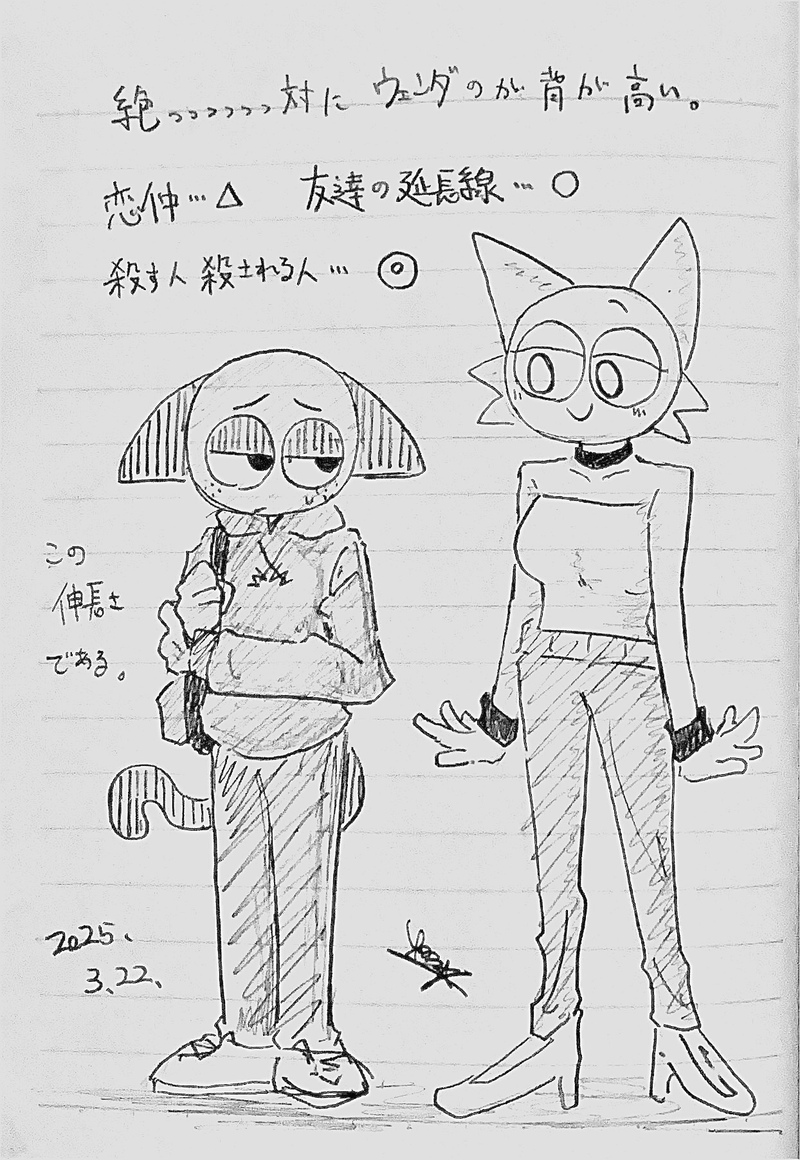 絶っっっっっっ対に ウェンダのが背が高い。
恋仲…△ 友達の延長線…○
殺す人 殺される人…◎
この
伸長さ
である。
2025.
3.22.